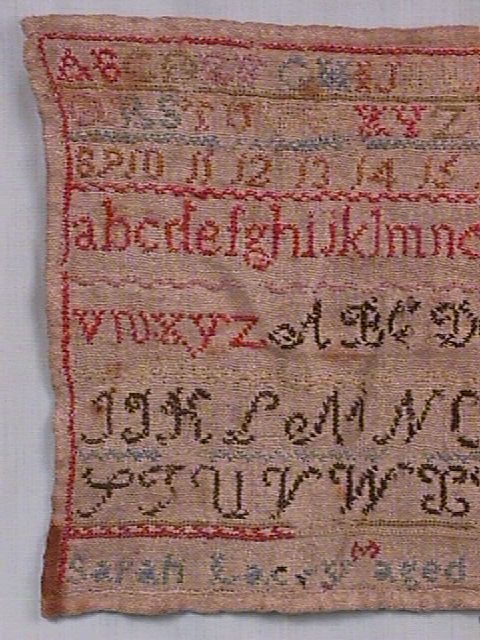 A B C D E F G H I J
Q R S T U X Y Z
8 9 10 11 12 13 14 15
abcdefghijklmno
vwxyz A B C D
I J K L M N O
S T U V W X
Sarah Lacey aged